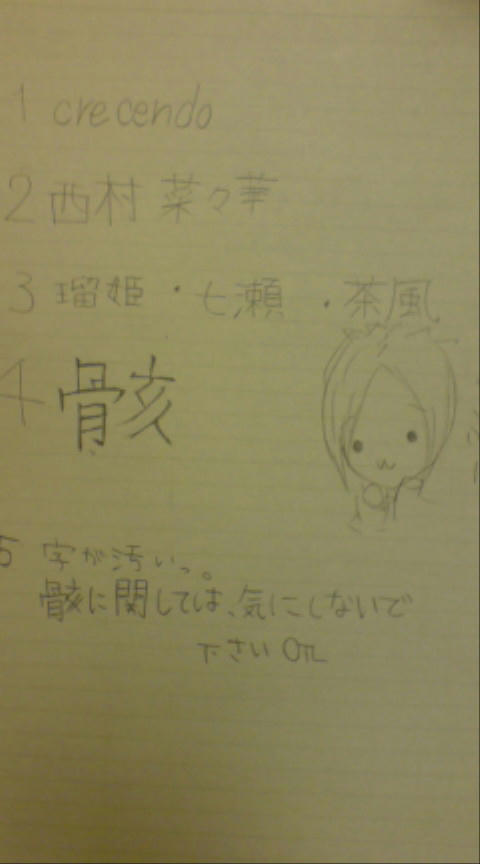 1 crecendo
2 西村 菜々華
3 瑠姫・七瀬・茶風
4 骸
5 字が汚いっ。
骸に関しては、気にしないで
下さいOTL